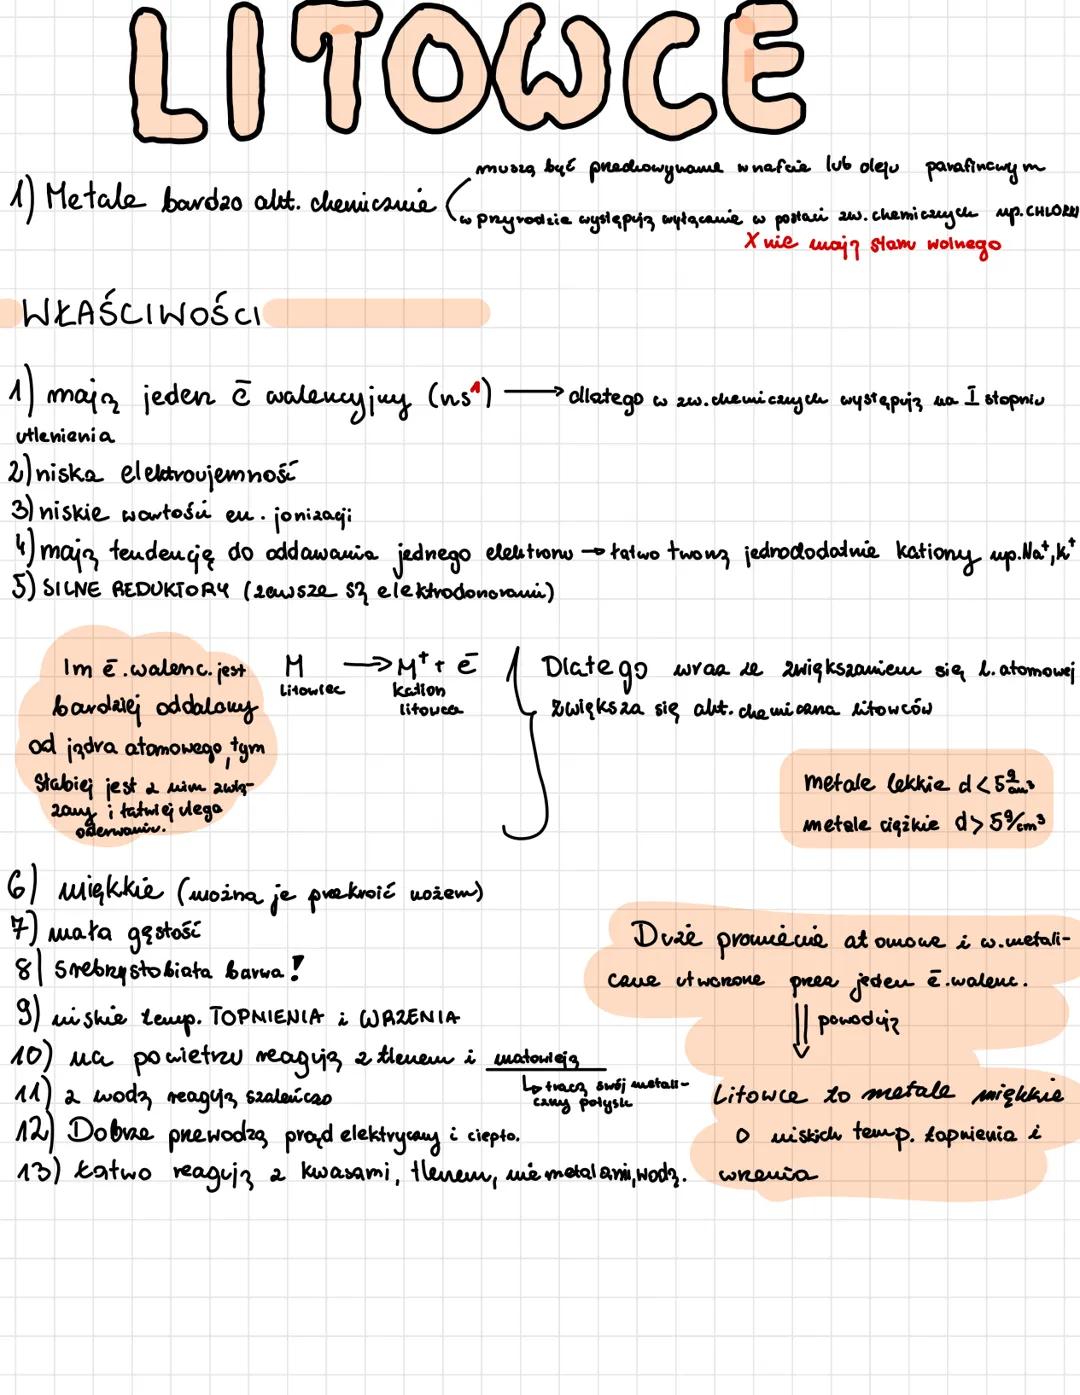 LITOWCE
muszą być przechowywane w nafcie lub oleju parafinowym
1) Metale bardzo akt. chemicznie
w przyrodzie występują wyłącznie w postaci zw. chemicznych np. CHLORKI
X nie mają stanu wolnego
WŁAŚCIWOŚCI
1) mają jeden ē walencyjny (ns¹) → dlatego w zw. chemicznych występują na I stopniu
utlenienia
2) niska elektroujemność
3) niskie wartości en. jonizacji
4) mają tendencję do oddawania jednego elektronu → łatwo tworzą jednododatnie kationy np. Na⁺, K⁺
5) SILNE REDUKTORY (zawsze są elektrodonorami)
Im ē. walenc. jest
bardziej oddalony
od jądra atomowego, tym
słabiej jest z nim zwią-
zany i łatwiej ulega
oderwaniu.
M → M⁺ + ē
litowiec kation
litowca
Dlatego wraz ze zwiększaniem się l. atomowej
zwiększa się akt. chemiczna litowców
metale lekkie d < 5 g/cm³
metale ciężkie d > 5 g/cm³
6) miękkie (można je przekroić nożem)
7) mała gęstość
8) srebrzystobiała barwa!
9) niskie temp. TOPNIENIA i WRZENIA
10) na powietrzu reagują z tlenem i matowieją
↳ tracą swój metali-
czny połysk
11) z wodą reagują szaleńczo
12) Dobrze przewodzą prąd elektryczny i ciepło.
13) łatwo reagują z kwasami, tlenem, niemetalami, wodą.
Duże promienie atomowe i w. metali-
czne utworzone przez jeden ē. walenc.
⇓ powodują
Litowce to metale miękkie
o niskich temp. topnienia i
wrzenia